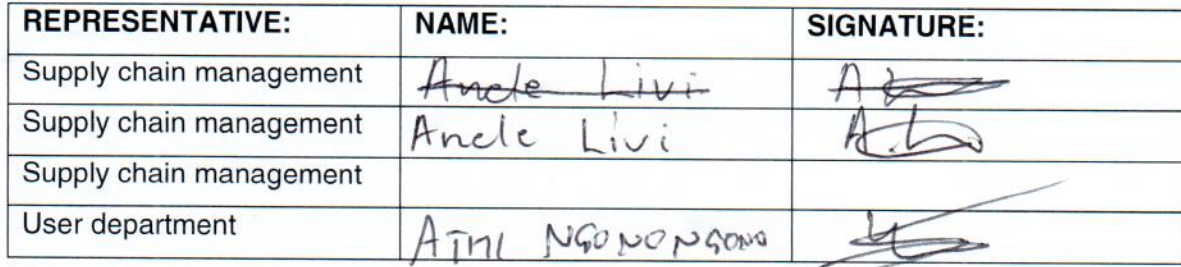 REPRESENTATIVE: NAME: SIGNATURE:
Supply chain management Ancle Livi
Supply chain management Ancle Livi A.L
Supply chain management
User department ATHI NGONONGONO